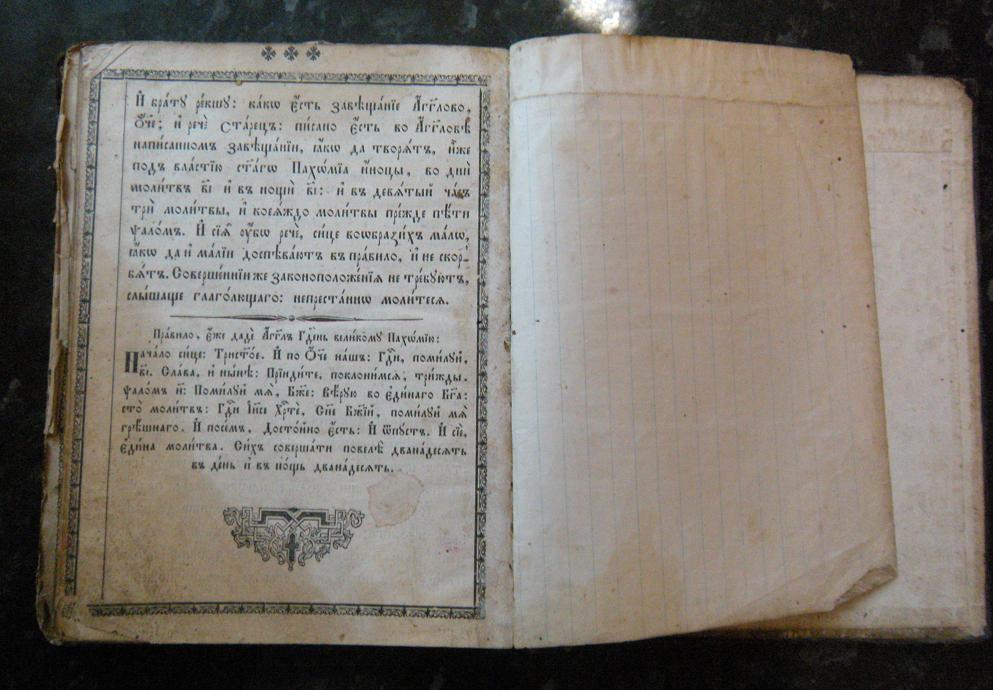 И҆ бра́ту ре́кшу: ка́кѡ є҆́сть завѣща́нїе А҆́гг҃лово,
Ѻ҆́ч҃е; и҆ речѐ Ста́рецъ: пи́сано є҆́сть во А҆́гг҃ловѣ
напи́санномъ завѣща́нїи, ꙗ҆́кѡ да творѧ́тъ, и҆̀же
подъ вла́стїю ст҃а́гѡ Пахѡ́мїа и҆́ноцы, во днѝ
моли́твъ в҃і и҆ въ нощѝ в҃і: и҆ въ девѧ́тый ча́съ
трѝ моли́твы, и҆ коеѧ́ждо моли́твы пре́жде пѣ́ти
ѱало́мъ. И҆ сїѧ̑ ᲂу҆́бѡ рече́, си́це воѡбрази́хъ ма́лѡ,
ꙗ҆́кѡ да и҆ ма́лїи доспѣва́ютъ въ пра́вило, и҆ не скор-
бѧ́тъ. Соверше́ннїи же законоположе́нїѧ не тре́буютъ,
слы́шаще глаго́лющаго: непреста́ннѡ моли́тесѧ.
Пра́вило, є҆́же дадѐ А҆́гг҃лъ Гд҇ень вели́кому Пахѡ́мїю:
Нача́ло си́це: Трист҃о́е. И҆ по Ѻ҆́ч҃е на́шъ: Гд҇и, поми́луй,
в҃і. Сла́ва, и҆ ны́нѣ: Прїиди́те, поклони́мсѧ, три́жды.
ѱало́мъ н҃: Поми́луй мѧ̀, Бж҃е: Вѣ́рую во є҆ди́наго Бг҃а:
сто̀ моли́твъ: Гд҇и І҆и҃се Хр҇тѐ, Сн҃е Бж҃їй, поми́луй мѧ̀
грѣ́шнаго. И҆ посе́мъ, Досто́йно є҆́сть: И҆ ѿпу́стъ. И҆ сѐ,
є҆ди́на моли́тва. Си́хъ соверша́ти повелѣ̀ двана́десѧть
въ де́нь и҆ въ но́щь двана́десѧть.